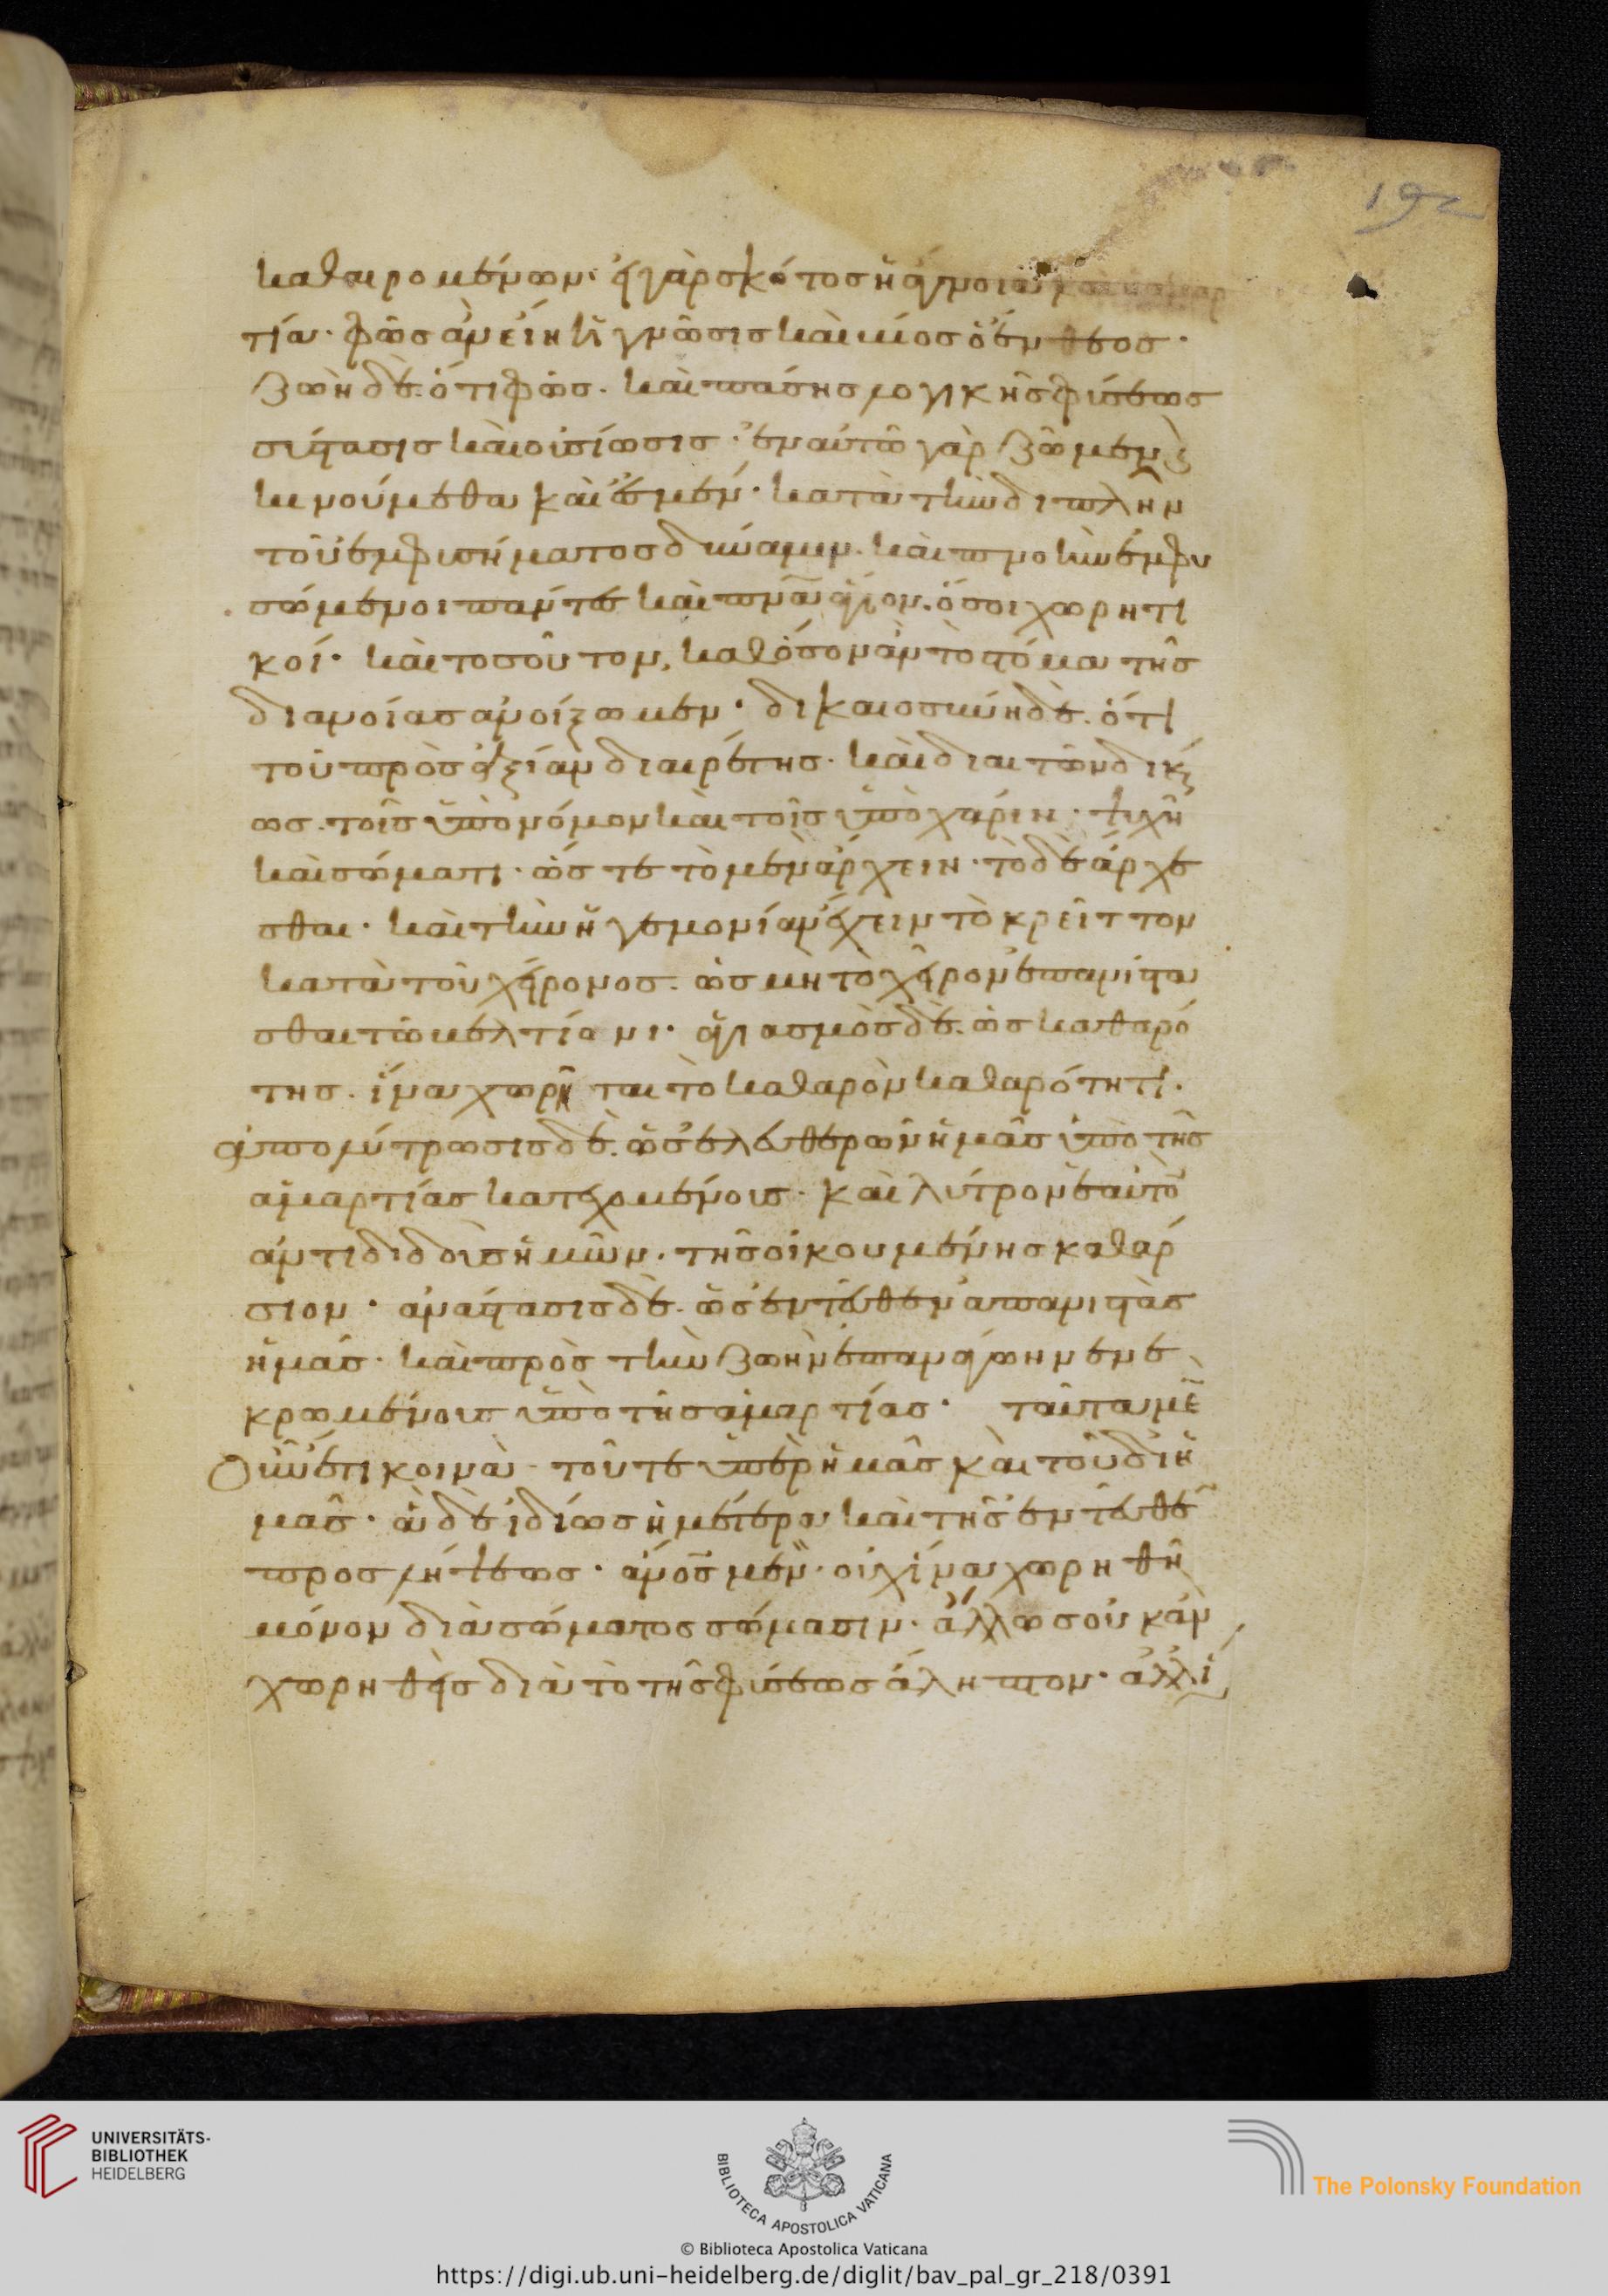 192
καθαιρομένων· εἰ γὰρ σκότος ἡ ἄγνοια καὶ ἡ ἁμαρ
τία· φῶς ἂν εἴη ἡ γνῶσις καὶ βίος ὁ ἔνθεος·
ζωὴ δὲ· ὅτι φῶς· καὶ πάσης λογικῆς φύσεως
σύστασις καὶ οὐσίωσις· ἐν αὐτῶ γὰρ ζῶμεν ϗ
κινούμεθα καὶ ἐσμέν· κατὰ τὴν διπλῆν
τοῦ ἐμφυσήματος δύναμιν· καὶ πνοὴν ἐμφυ
σώμενοι πάντες καὶ πνᾶ ἅγιον· ὅσοι χωρητι
κοί· καὶ τοσοῦτον, καθόσον ἂν τὸ στόμα τῆς
διανοίας ἀνοίξωμεν· δικαιοσύνη δὲ· ὅτι
τοῦ πρὸς ἀξίαν διαιρέτης· καὶ διαιτῶν δικαί
ως· τοῖς ὑπὸ νόμον καὶ τοῖς ὑπὸ χάριν· ψυχῆ
καὶ σώματι· ὥστε τὸ μὲν ἄρχειν· τὸ δὲ ἄρχε
σθαι· καὶ τὴν ἡγεμονίαν ἔχειν τὸ κρεῖττον
κατὰ τοῦ χείρονος· ὡς μὴ τὸ χεῖρον ἐπανίστα
σθαι τῶ βελτίονι· ἁγιασμὸς δὲ· ὡς καθαρό
της· ἵνα χωρῆται τὸ καθαρὸν καθαρότητι·
ἀπολύτρωσις δὲ· ὡς ἐλευθερῶν ἡμᾶς ὑπὸ τῆς
ἁμαρτίας κατεχομένους· καὶ λύτρον ἑαυτὸν
ἀντιδιδοὺς ἡμῶν· τῆς οἰκουμένης καθάρ
σιον· ἀνάστασις δὲ· ὡς ἐντεῦθεν ἀπανιστὰς
ἡμᾶς· καὶ πρὸς τὴν ζωὴν ἐπανάγων νενε
κρωμένους ὑπὸ τῆς ἁμαρτίας· ταῦτα μὲν
οὖν ἔτι κοινὰ· τοῦ τε ὑπὲρ ἡμᾶς καὶ τοῦ δι' ἡ
μᾶς· ἃ δὲ ἰδίως ἡμέτερα καὶ τῆς ἐντεῦθεν
προσλήψεως· ἄνος μὲν· οὐχ ἵνα χωρηθῆ
μόνον διὰ σώματος σώμασιν· ἄλλως οὐκ ἂν
χωρηθεὶς διὰ τὸ τῆς φύσεως ἄληπτον· ἀλλ' ἵ
UNIVERSITÄTS-
BIBLIOTHEK
HEIDELBERG
BIBLIOTECA APOSTOLICA VATICANA
The Polonsky Foundation
© Biblioteca Apostolica Vaticana
https://digi.ub.uni-heidelberg.de/diglit/bav_pal_gr_218/0391